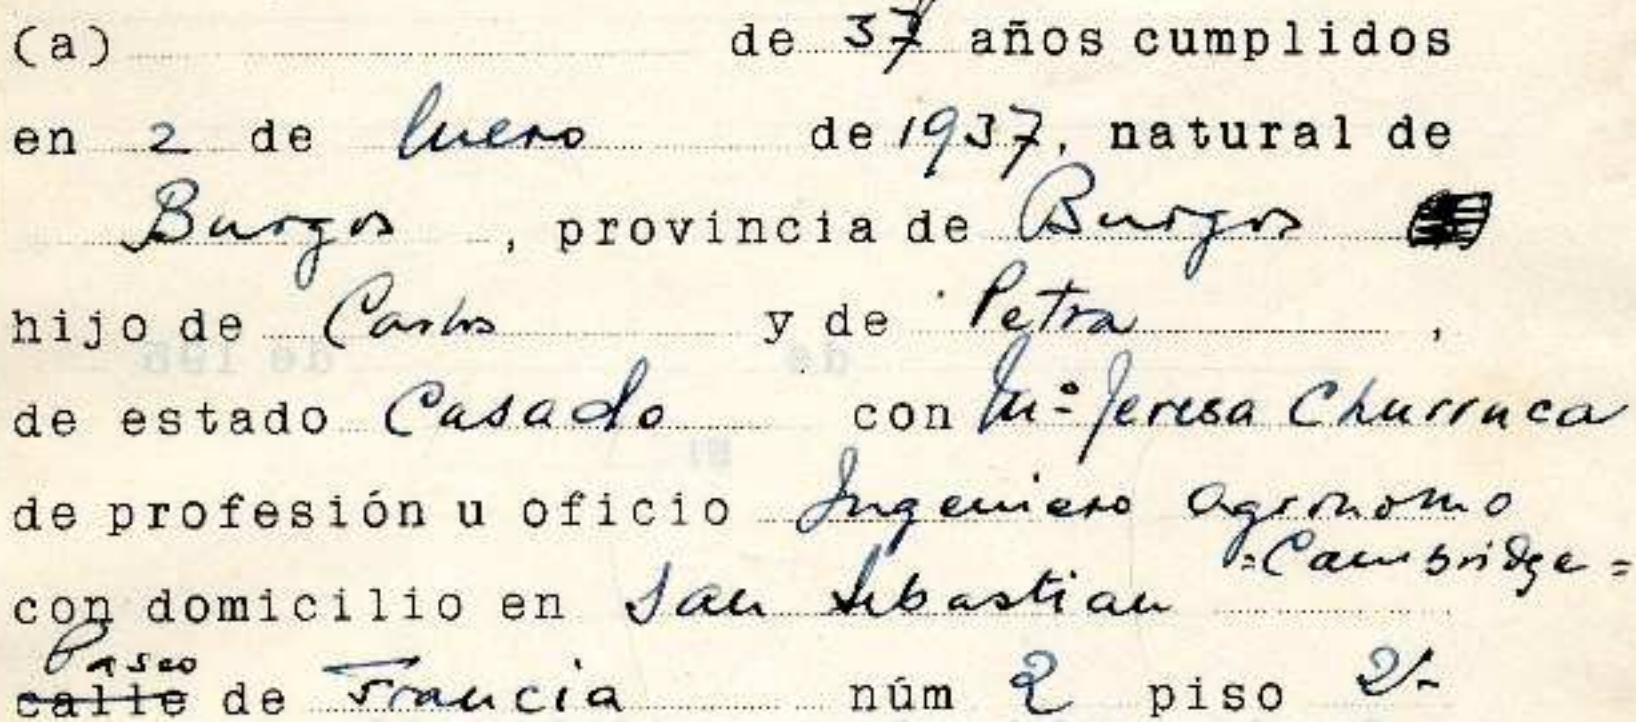 (a) de 37 años cumplidos
en 2 de Enero de 1937, natural de
Burgos, provincia de Burgos
hijo de Carlos y de Petra,
de estado Casado con Mª Teresa Churruca
de profesión u oficio Ingeniero agronomo
=Cambridge=
con domicilio en San Sebastian
Paseo
calle de Francia núm 2 piso 2º